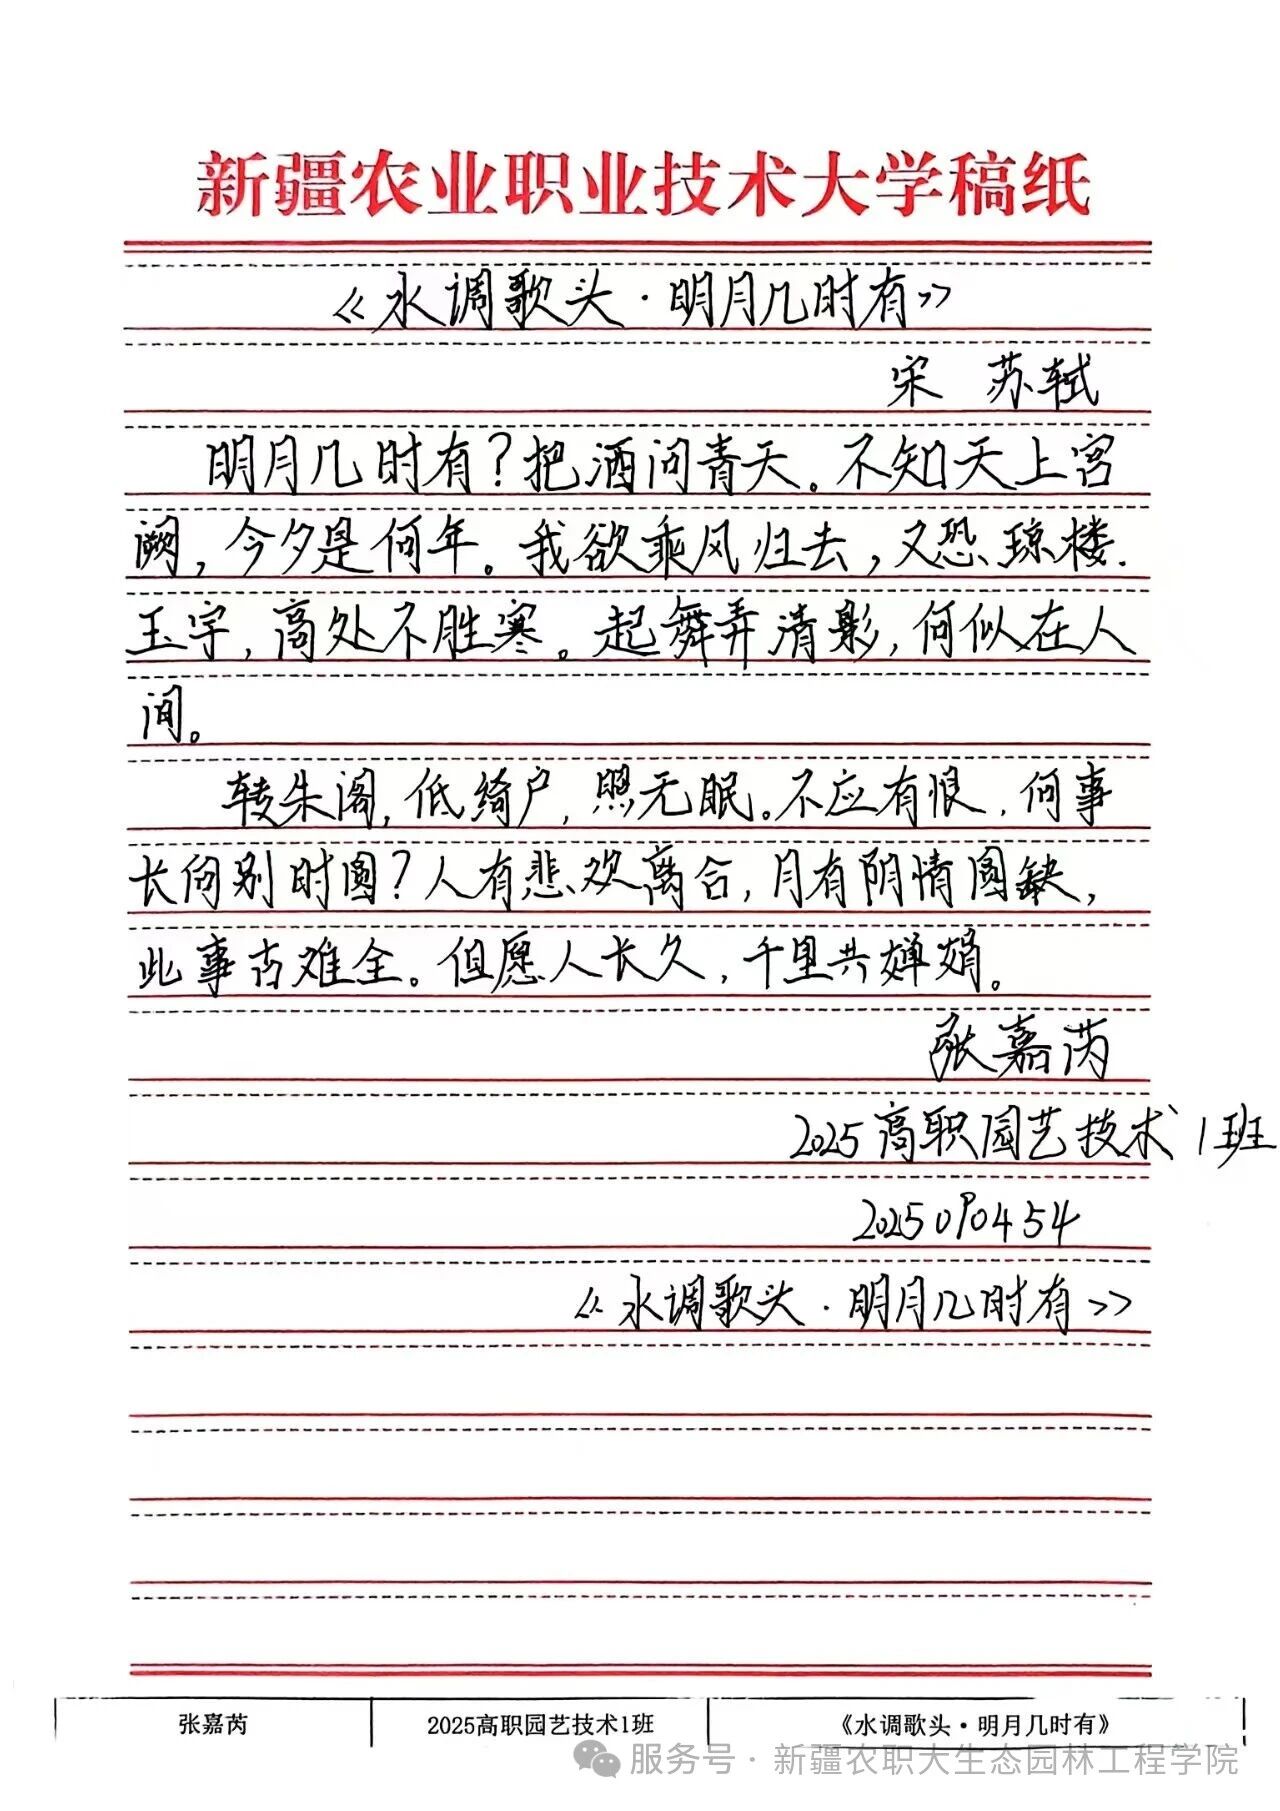 新疆农业职业技术大学稿纸
《水调歌头·明月几时有》
宋 苏轼
明月几时有?把酒问青天。不知天上宫
阙,今夕是何年。我欲乘风归去,又恐琼楼
玉宇,高处不胜寒。起舞弄清影,何似在人
间。
转朱阁,低绮户,照无眠。不应有恨,何事
长向别时圆?人有悲欢离合,月有阴情圆缺,
此事古难全。但愿人长久,千里共婵娟。
张嘉芮
2025高职园艺技术1班
2025090454
《水调歌头·明月几时有》
张嘉芮 2025高职园艺技术1班 《水调歌头·明月几时有》
服务号·新疆农职大生态园林工程学院